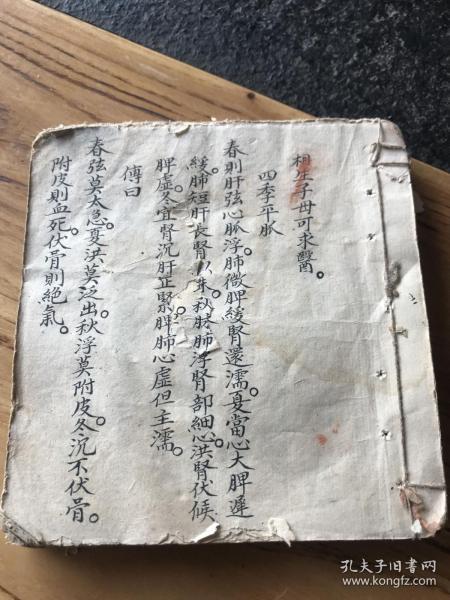 相生子母可求醫。
四季平脈
春則肝弦心脈浮。肺微脾緩腎還濡。夏當心大脾遲
緩。肺短肝長腎似珠。秋肺浮腎部細。心洪腎伏候
脾虛。冬宜腎沉肝正緊。脾肺心虛但主濡。
傳曰
春弦莫太急。夏洪莫泛出。秋浮莫附皮。冬沉不伏骨。
附皮則血死。伏骨則絕氣。
孔夫子旧书网
www.kongfz.com